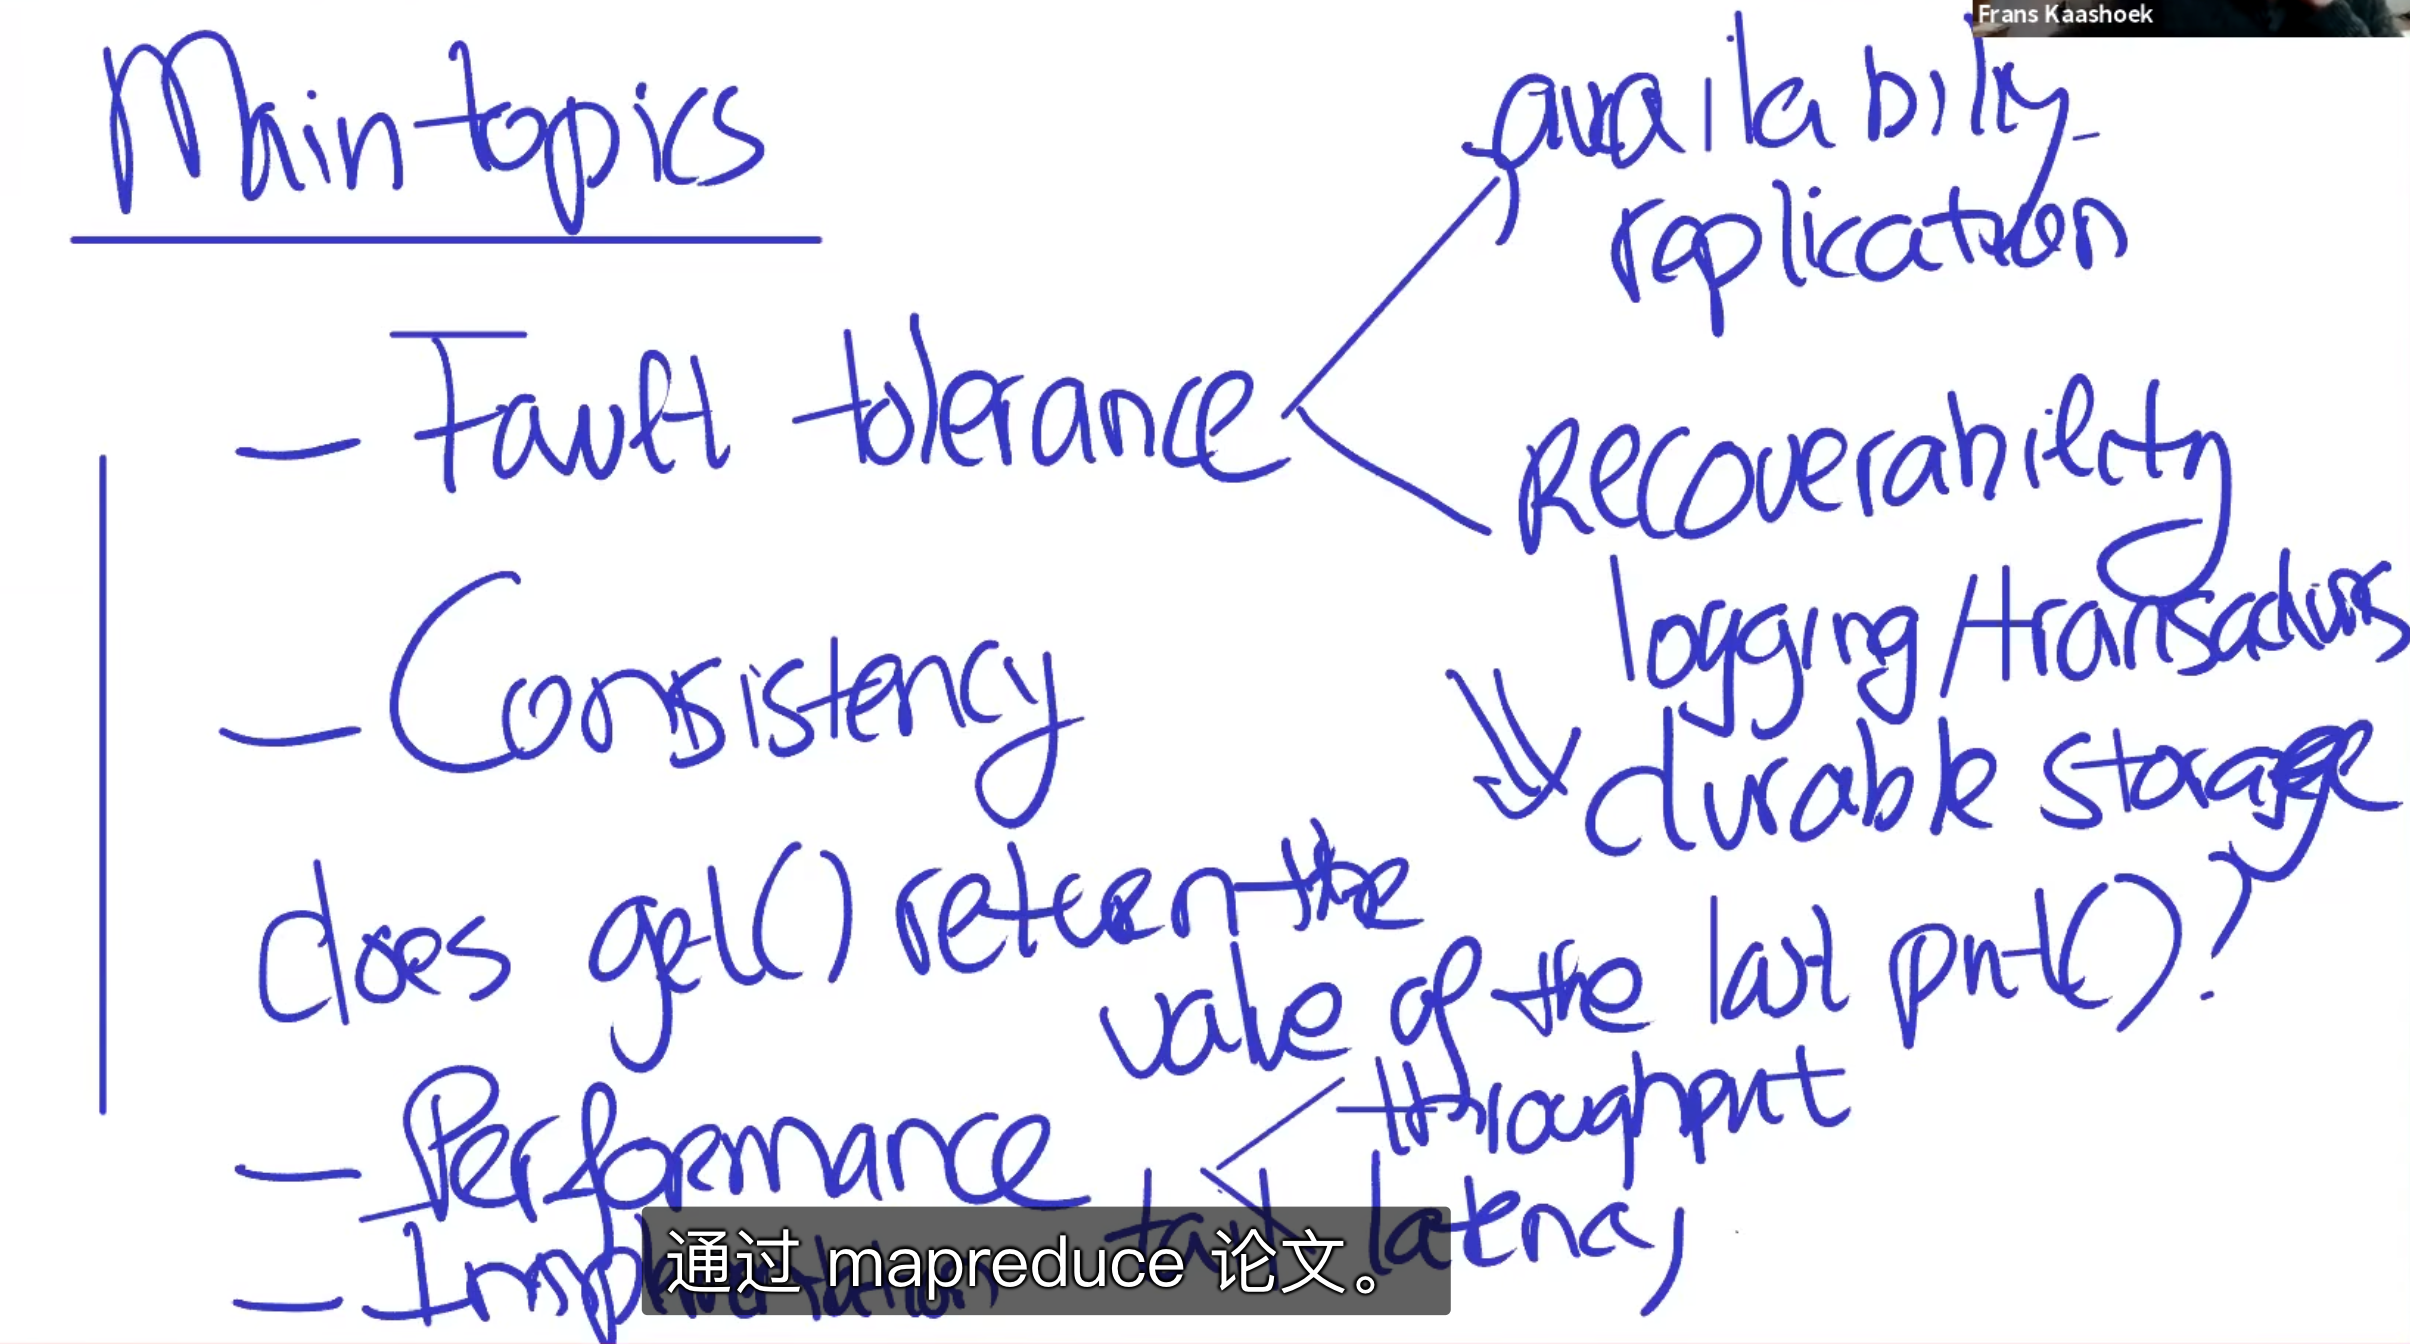 Frans Kaashoek
Main topics
- Fault tolerance
availability
replication
Recoverability
logging/transactions
durable storage
- Consistency
does get() return the
value of the last put()?
- Performance
throughput
tail latency
- Implementation
通过 mapreduce 论文。